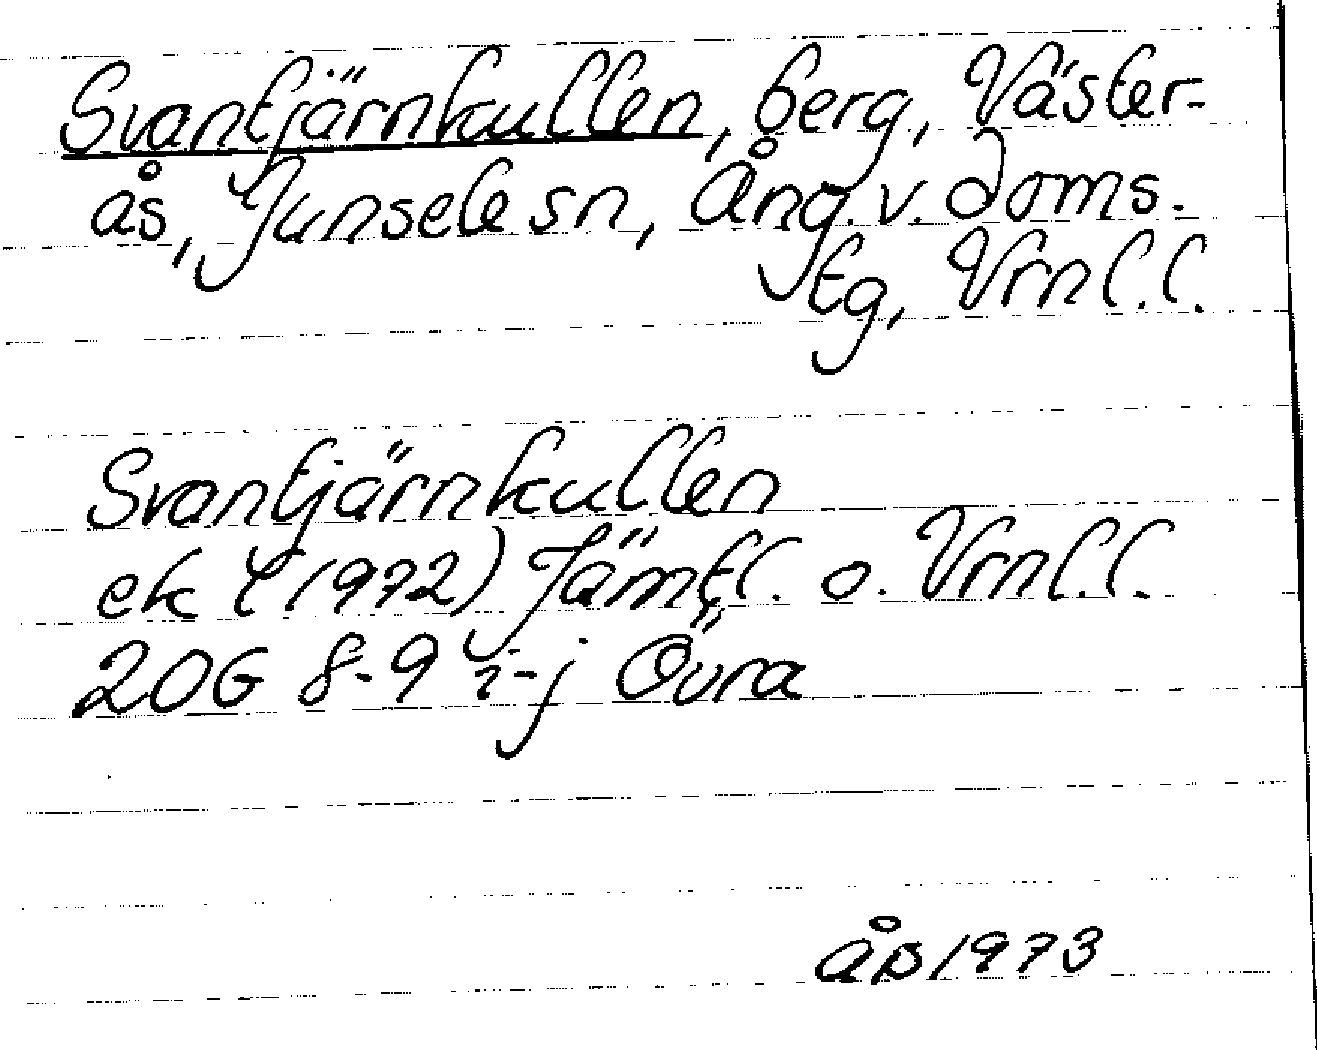 Svantjärnkullen, berg, Väster-
ås, Junsele sn, Ång. v. doms.
tg, Vrnl.l.
Svantjärnkullen
ek (1972) Jämtl. o. Vrnl.l.
20G 8-9 i-j Övra
åb 1973